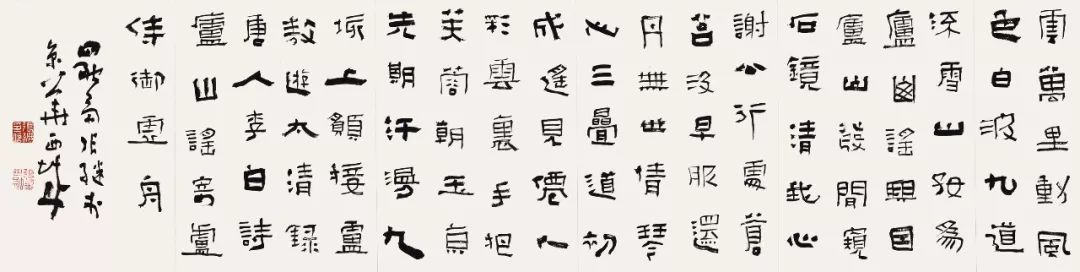 雲萬里動風
色白波九道
流雪山好為
廬山謠興因
廬山發閒窺
石鏡清我心
謝公行處蒼
苔没早服還
丹無世情琴
心三疊道初
成遙見僊人
彩雲裏手把
芙蓉朝玉京
先期汗漫九
垓上願接盧
敖遊太清錄
唐人李白詩
廬山謠寄盧
侍御虛舟
張継於
京華西